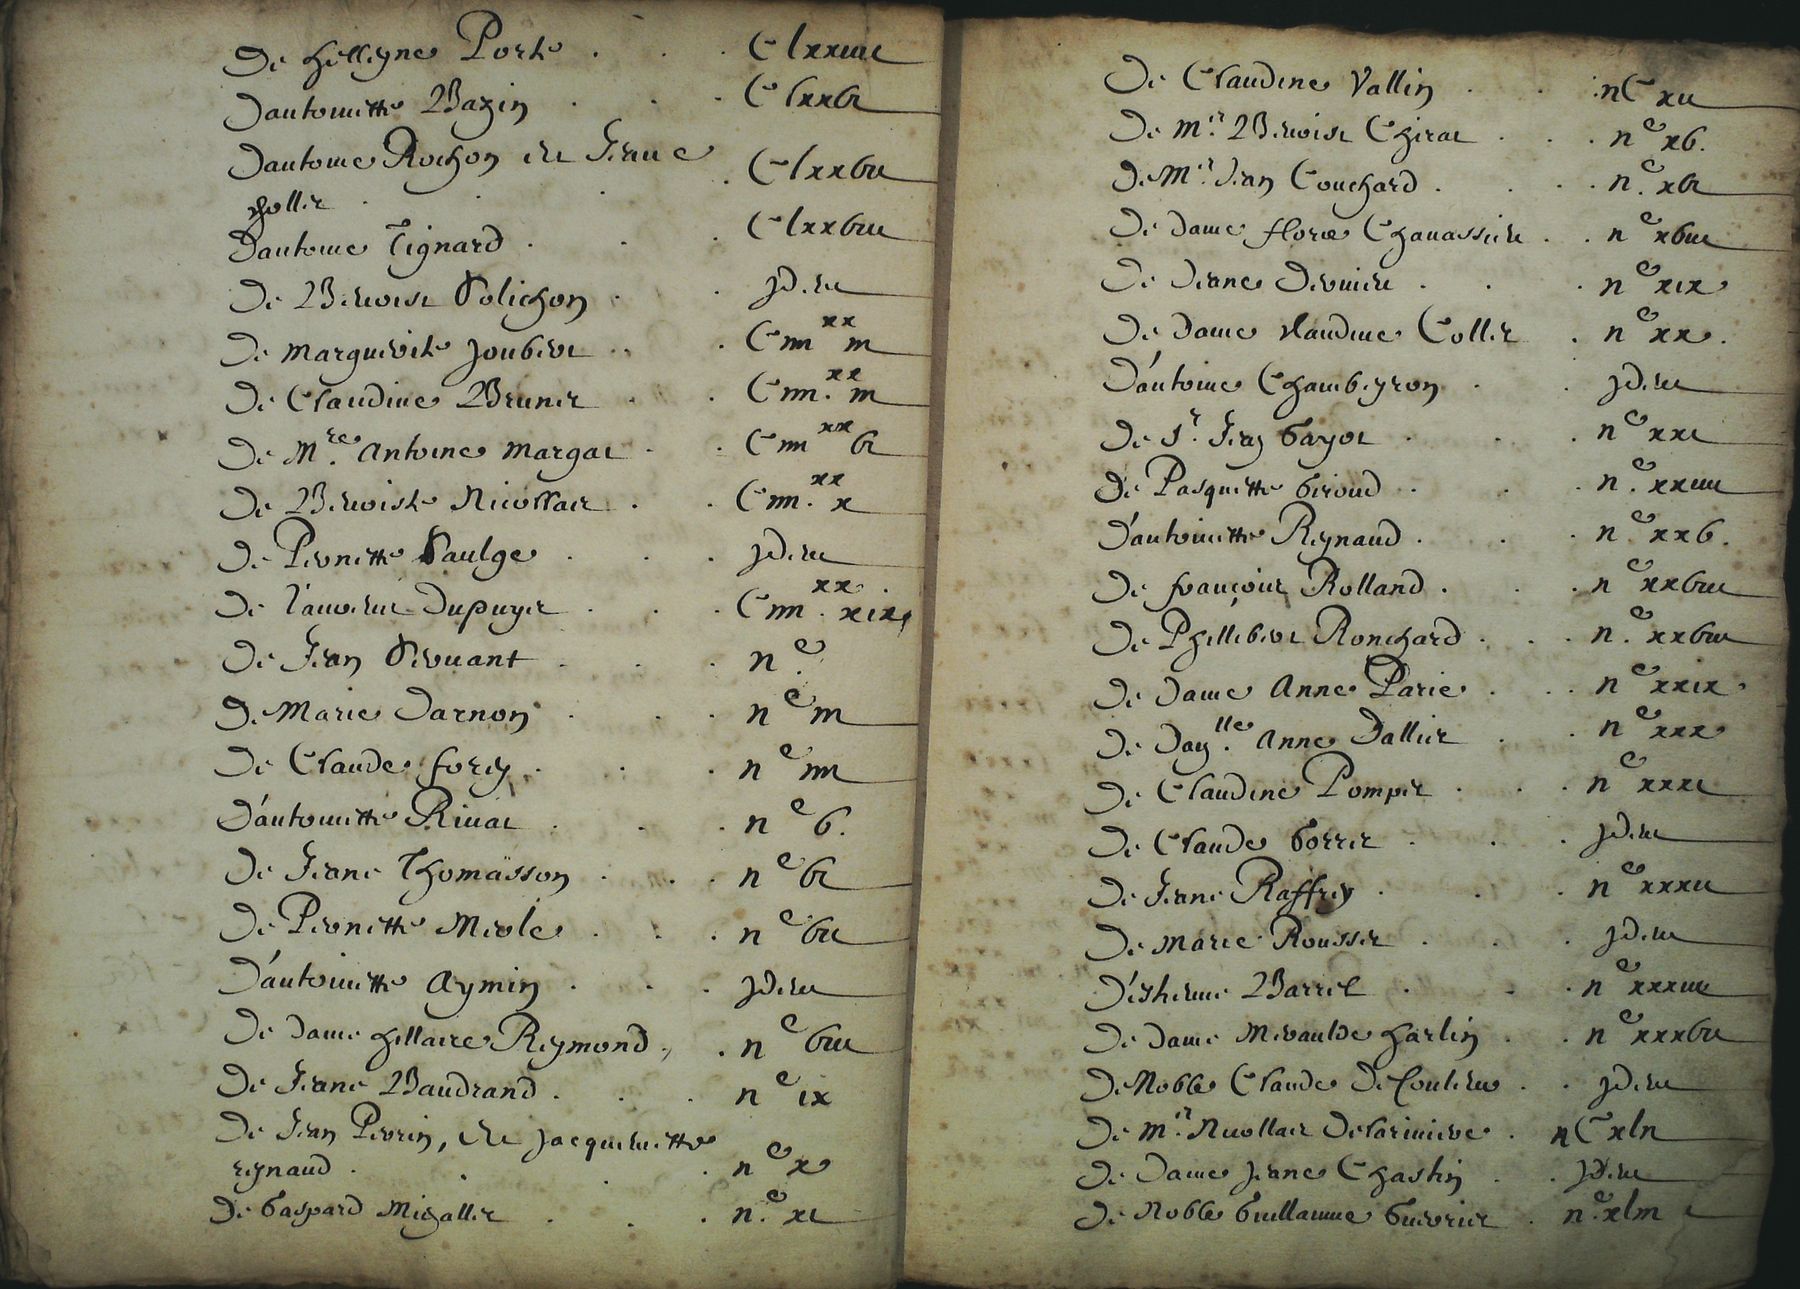 De Helleyne Porte . . . Clxxiiii
Dantoinette Bazin . . . Clxxvi
Dantoine Rochon et Jeane Clxxvii
Hollier . . .
Dantoine Tignard . . . Clxxviii
De Benoist Polichon . . jdem
De Marguerite Joubert . . Ciiii xx iii
De Claudine Brunet . . Ciiii. xx iii
De Mre. Antoine Margat . . Ciiii xx vi
De Benoiste Nicollas . . Ciiii. xx x
De Pernette Paulge . . . jdem
De Laurent Dupuyet . . . Ciiii. xx xix
De Jean Servant . . . iic.
De Marie Darnon . . . iic iii
De Claude Forey . . . iic iiii
D'antoinette Rivat . . . iic v.
De Jeane Thomasson . . . iic vi
De Pernette Merle . . . iic vii
D'antoinette Aymin . . . jdem
De Dame Hellaire Reymond . . iic viii
De Jeane Baudrand . . . iic ix
De Jean Perrin, et Jacquemette
reynaud . . . . iic x
De Gaspard Michallet . . . iic. xi
De Claudine Vallin . . . iiC xii
De Mr. Benoist Chirat . . . iic xv.
De Mr. Jean Couchard . . . iic. xvi
De Dame Florie Chavassieu . . iic xviii
De Jeane Dervieu . . . iic xix
De Dame Claudine Collet . iic xx.
D'antoine Chambeyron . . jdem
De Sr. Jean Gayot . . . iic xxi
De Pasquette Giroud . . . iic. xxiiii
D'antoinette Reynaud . . . iic. xxv.
De François Rolland . . . iic xxviii
De Phillibert Ronchard . . . iic. xxviii
De Dame Anne Parie . . . iic xxix.
De Daylle. Anne Dallier . . iic xxx
De Claudine Pomper . . . iic xxxi
De Claude Gorret . . . jdem
De Jeane Raffrey . . . iic xxxii
De Marie Rousset . . . jdem
D'estienne Barrel . . . iic xxxiiii
De Dame Meraulde Harlin . . iic xxxvii
De Noble Claude De Couleur . . jdem
De Mr. Nicollas Delariviere . iiC xlii
De Dame Jeane Chastin . . jdem
De Noble Guillaume Guerrier . iic. xliii